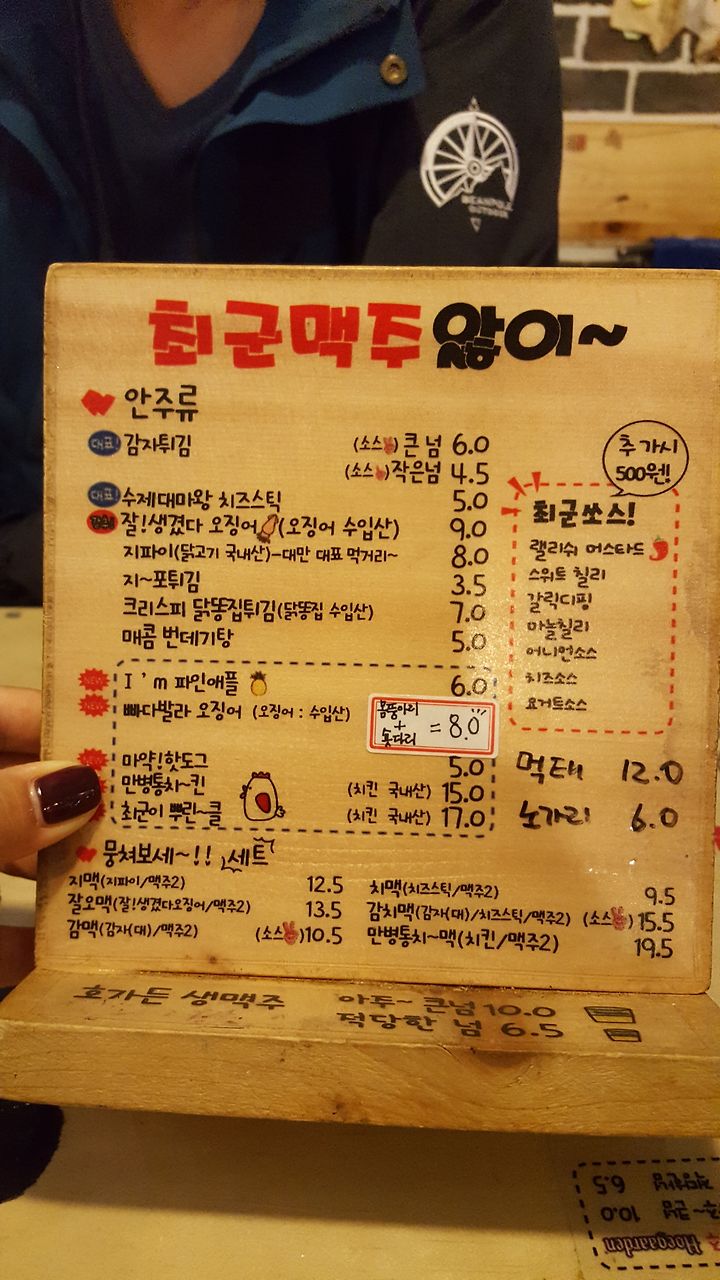 최군맥주 앓이~
안주류
대표! 감자튀김 (소스✌) 큰넘 6.0
(소스) 작은넘 4.5
대표! 수제대마왕 치즈스틱 5.0
잘!생겼다 오징어 (오징어 수입산) 9.0
지파이(닭고기 국내산)-대만 대표 먹거리~ 8.0
지~포튀김 3.5
크리스피 닭똥집튀김(닭똥집 수입산) 7.0
매콤 번데기탕 5.0
추가시
500원!
최군쏘스!
랠리쉬 머스타드
스위트 칠리
갈릭디핑
마늘칠리
어니언소스
치즈소스
요거트소스
NEW I'm 파인애플 6.0
NEW 빠다발라 오징어 (오징어 : 수입산)
몸뚱아리
+
숏다리
= 8.0
NEW 마약!핫도그 5.0
만병통치~킨 (치킨 국내산) 15.0
최군이 뿌린~클 (치킨 국내산) 17.0
먹태 12.0
노가리 6.0
뭉쳐보세~!! 세트
지맥(지파이/맥주2) 12.5
잘오맥(잘!생겼다오징어/맥주2) 13.5
감맥(감자(대)/맥주2) (소스✌) 10.5
치맥(치즈스틱/맥주2) 9.5
감치맥(감자(대)/치즈스틱/맥주2) (소스✌) 15.5
만병통치~맥(치킨/맥주2) 19.5
호가든 생맥주 아투~ 큰넘 10.0
적당한 넘 6.5
6.5
10.0
Hoegaarden